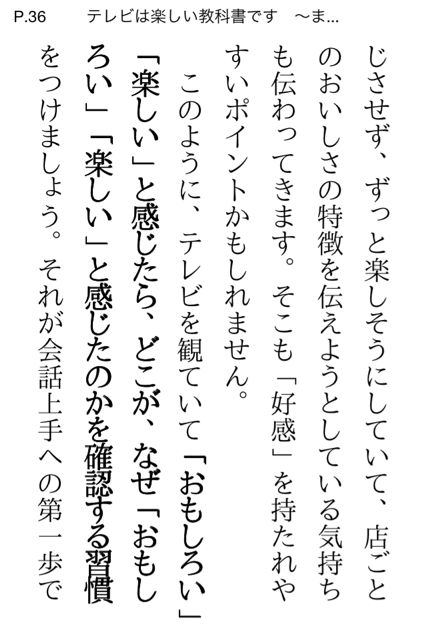 P.36 テレビは楽しい教科書です ～ま...
じさせず、ずっと楽しそうにしていて、店ごと
のおいしさの特徴を伝えようとしている気持ち
も伝わってきます。そこも「好感」を持たれや
すいポイントかもしれません。
このように、テレビを観ていて「おもしろい」
「楽しい」と感じたら、どこが、なぜ「おもし
ろい」「楽しい」と感じたのかを確認する習慣
をつけましょう。それが会話上手への第一歩で